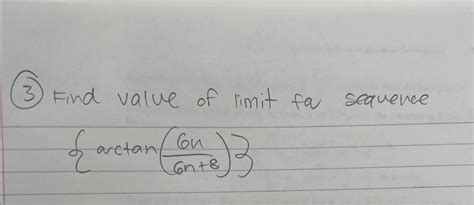 ③ Find value of limit fa sequence
{arctan(6n/6n+8)}